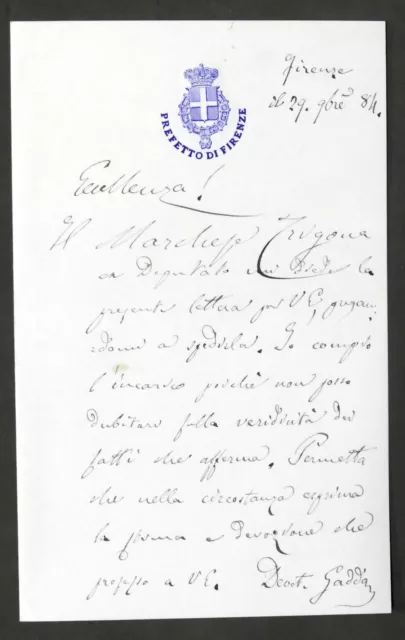 PREFETTO DI FIRENZE
Firenze
il 29. 9bre 84.
Eccellenza!
Il Marchese Trigona
ex Deputato mi diede la
presente lettera per V.E, pregan
domi a spedirla. Io compio
l'incarico poichè non posso
dubitare sulla veridicità dei
fatti che afferma. Permetta
che nella circostanza esprima
la stima e devozione che
professo a V.E. Devot. Gadda